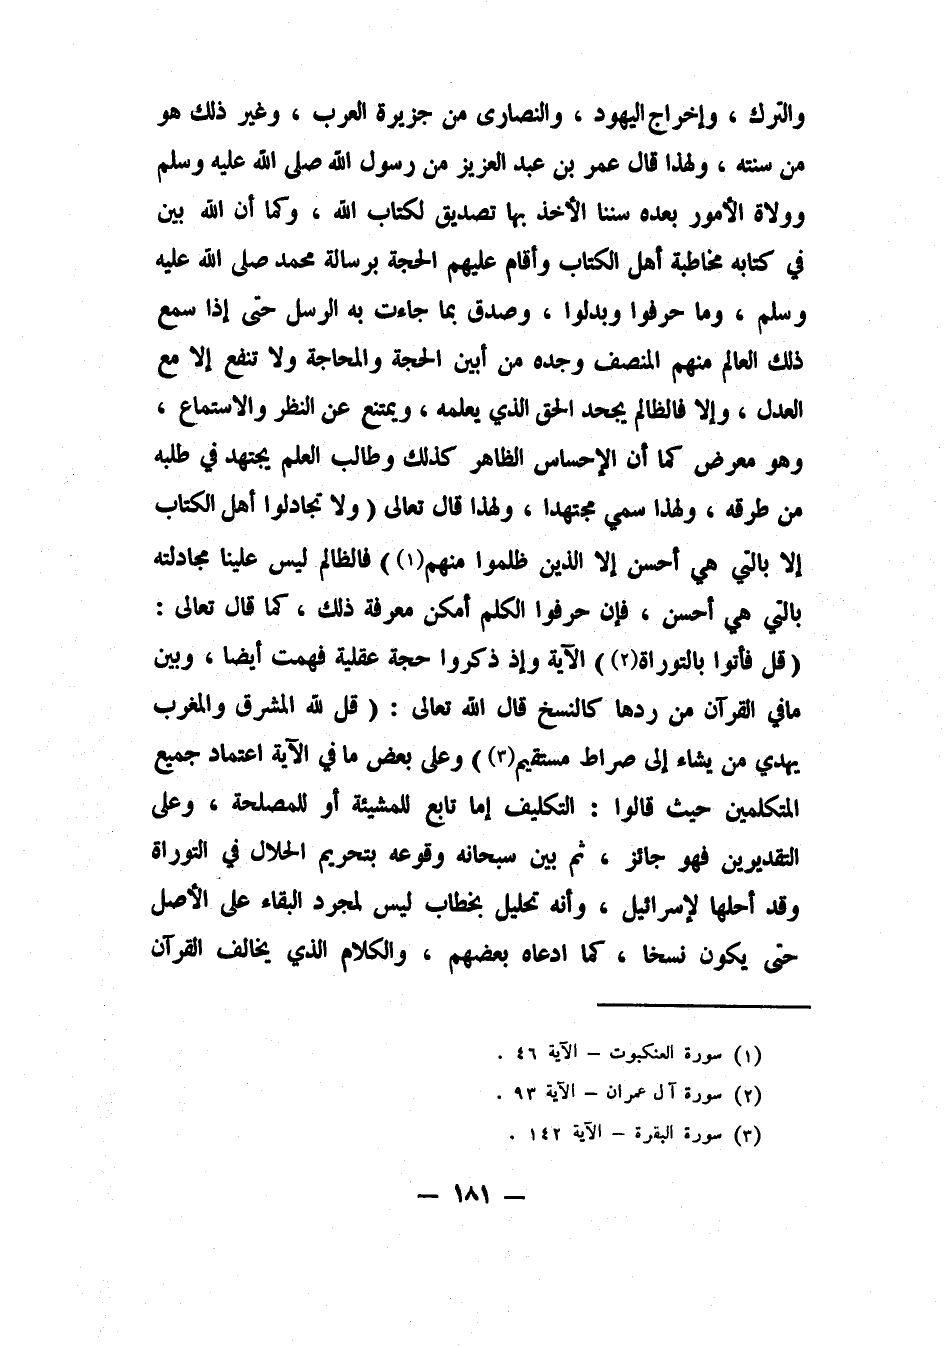 والترك ، وإخراج اليهود ، والنصارى من جزيرة العرب ، وغير ذلك هو
من سنته ، ولهذا قال عمر بن عبد العزيز من رسول الله صلى الله عليه وسلم
وولاة الأمور بعده سننا الأخذ بها تصديق لكتاب الله ، وكما أن الله بين
في كتابه مخاطبة أهل الكتاب وأقام عليهم الحجة برسالة محمد صلى الله عليه
وسلم ، وما حرفوا وبدلوا ، وصدق بما جاءت به الرسل حتى إذا سمع
ذلك العالم منهم المنصف وجده من أبين الحجة والمحاجة ولا تنفع إلا مع
العدل ، وإلا فالظالم يجحد الحق الذي يعلمه ، ويمتنع عن النظر والاستماع ،
وهو معرض كما أن الإحساس الظاهر كذلك وطالب العلم يجتهد في طلبه
من طرقه ، ولهذا سمي مجتهدا ، ولهذا قال تعالى ( ولا تجادلوا أهل الكتاب
إلا بالتي هي أحسن إلا الذين ظلموا منهم(١) ) فالظالم ليس علينا مجادلته
بالتي هي أحسن ، فإن حرفوا الكلم أمكن معرفة ذلك ، كما قال تعالى :
( قل فأتوا بالتوراة(٢) ) الآية وإذ ذكروا حجة عقلية فهمت أيضا ، وبين
مافي القرآن من ردها كالنسخ قال الله تعالى : ( قل لله المشرق والمغرب
يهدي من يشاء إلى صراط مستقيم(٣) ) وعلى بعض ما في الآية اعتماد جميع
المتكلمين حيث قالوا : التكليف إما تابع للمشيئة أو للمصلحة ، وعلى
التقديرين فهو جائز ، ثم بين سبحانه وقوعه بتحريم الحلال في التوراة
وقد أحلها لإسرائيل ، وأنه تحليل بخطاب ليس لمجرد البقاء على الأصل
حتى يكون نسخا ، كما ادعاه بعضهم ، والكلام الذي يخالف القرآن
(١) سورة العنكبوت – الآية ٤٦ .
(٢) سورة آل عمران – الآية ٩٣ .
(٣) سورة البقرة – الآية ١٤٢ .
– ١٨١ –